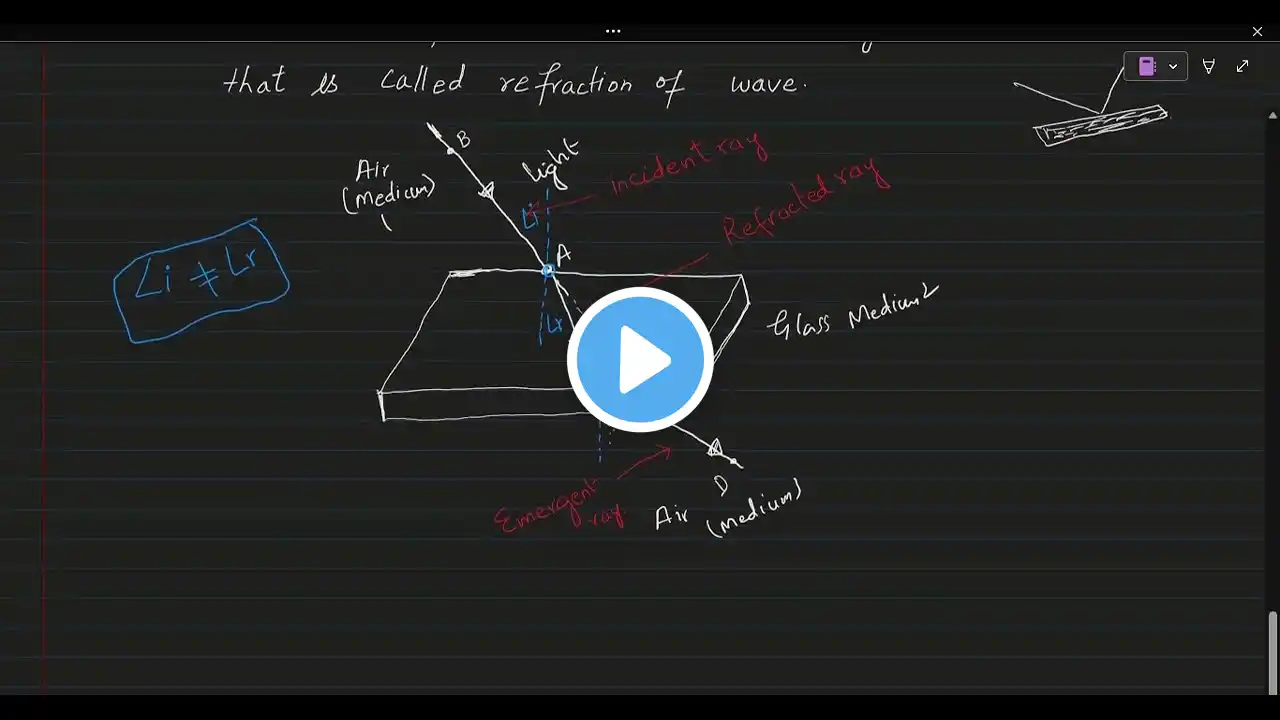 that is called refraction of wave.
B
Air
(medium)
1
light
incident ray
Refracted ray
∠i
A
∠i ≠ ∠r
∠r
Glass Medium2
D
Emergent
ray
Air
(medium)